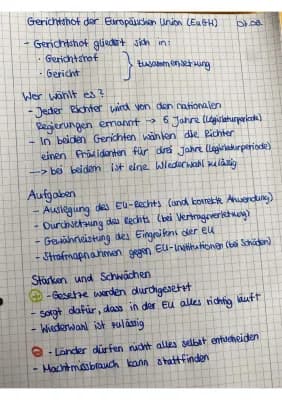 Gerichtshof der Europäischen Union (EuGH)
- Gerichtshof gliedert sich in:
· Gerichtshof
· Gericht
} Zusammensetzung
Wer wählt es?
- Jeder Richter wird von den nationalen
Regierungen ernannt → 6 Jahre (Legislaturperiode)
- In beiden Gerichten wählen die Richter
einen Präsidenten für drei Jahre (Legislaturperiode)
→ bei beidem ist eine Wiederwahl zulässig
Aufgaben
- Auslegung des EU-Rechts (und korrekte Anwendung)
- Durchsetzung des Rechts (bei Vertragsverletzung)
- Gewährleistung des Eingreifens der EU
- Strafmaßnahmen gegen EU-Institutionen (bei Schäden)
Stärken und Schwächen
+ - Gesetze werden durchgesetzt
- sorgt dafür, dass in der EU alles richtig läuft
- Wiederwahl ist zulässig
- - Länder dürfen nicht alles selbst entscheiden
- Machtmissbrauch kann stattfinden